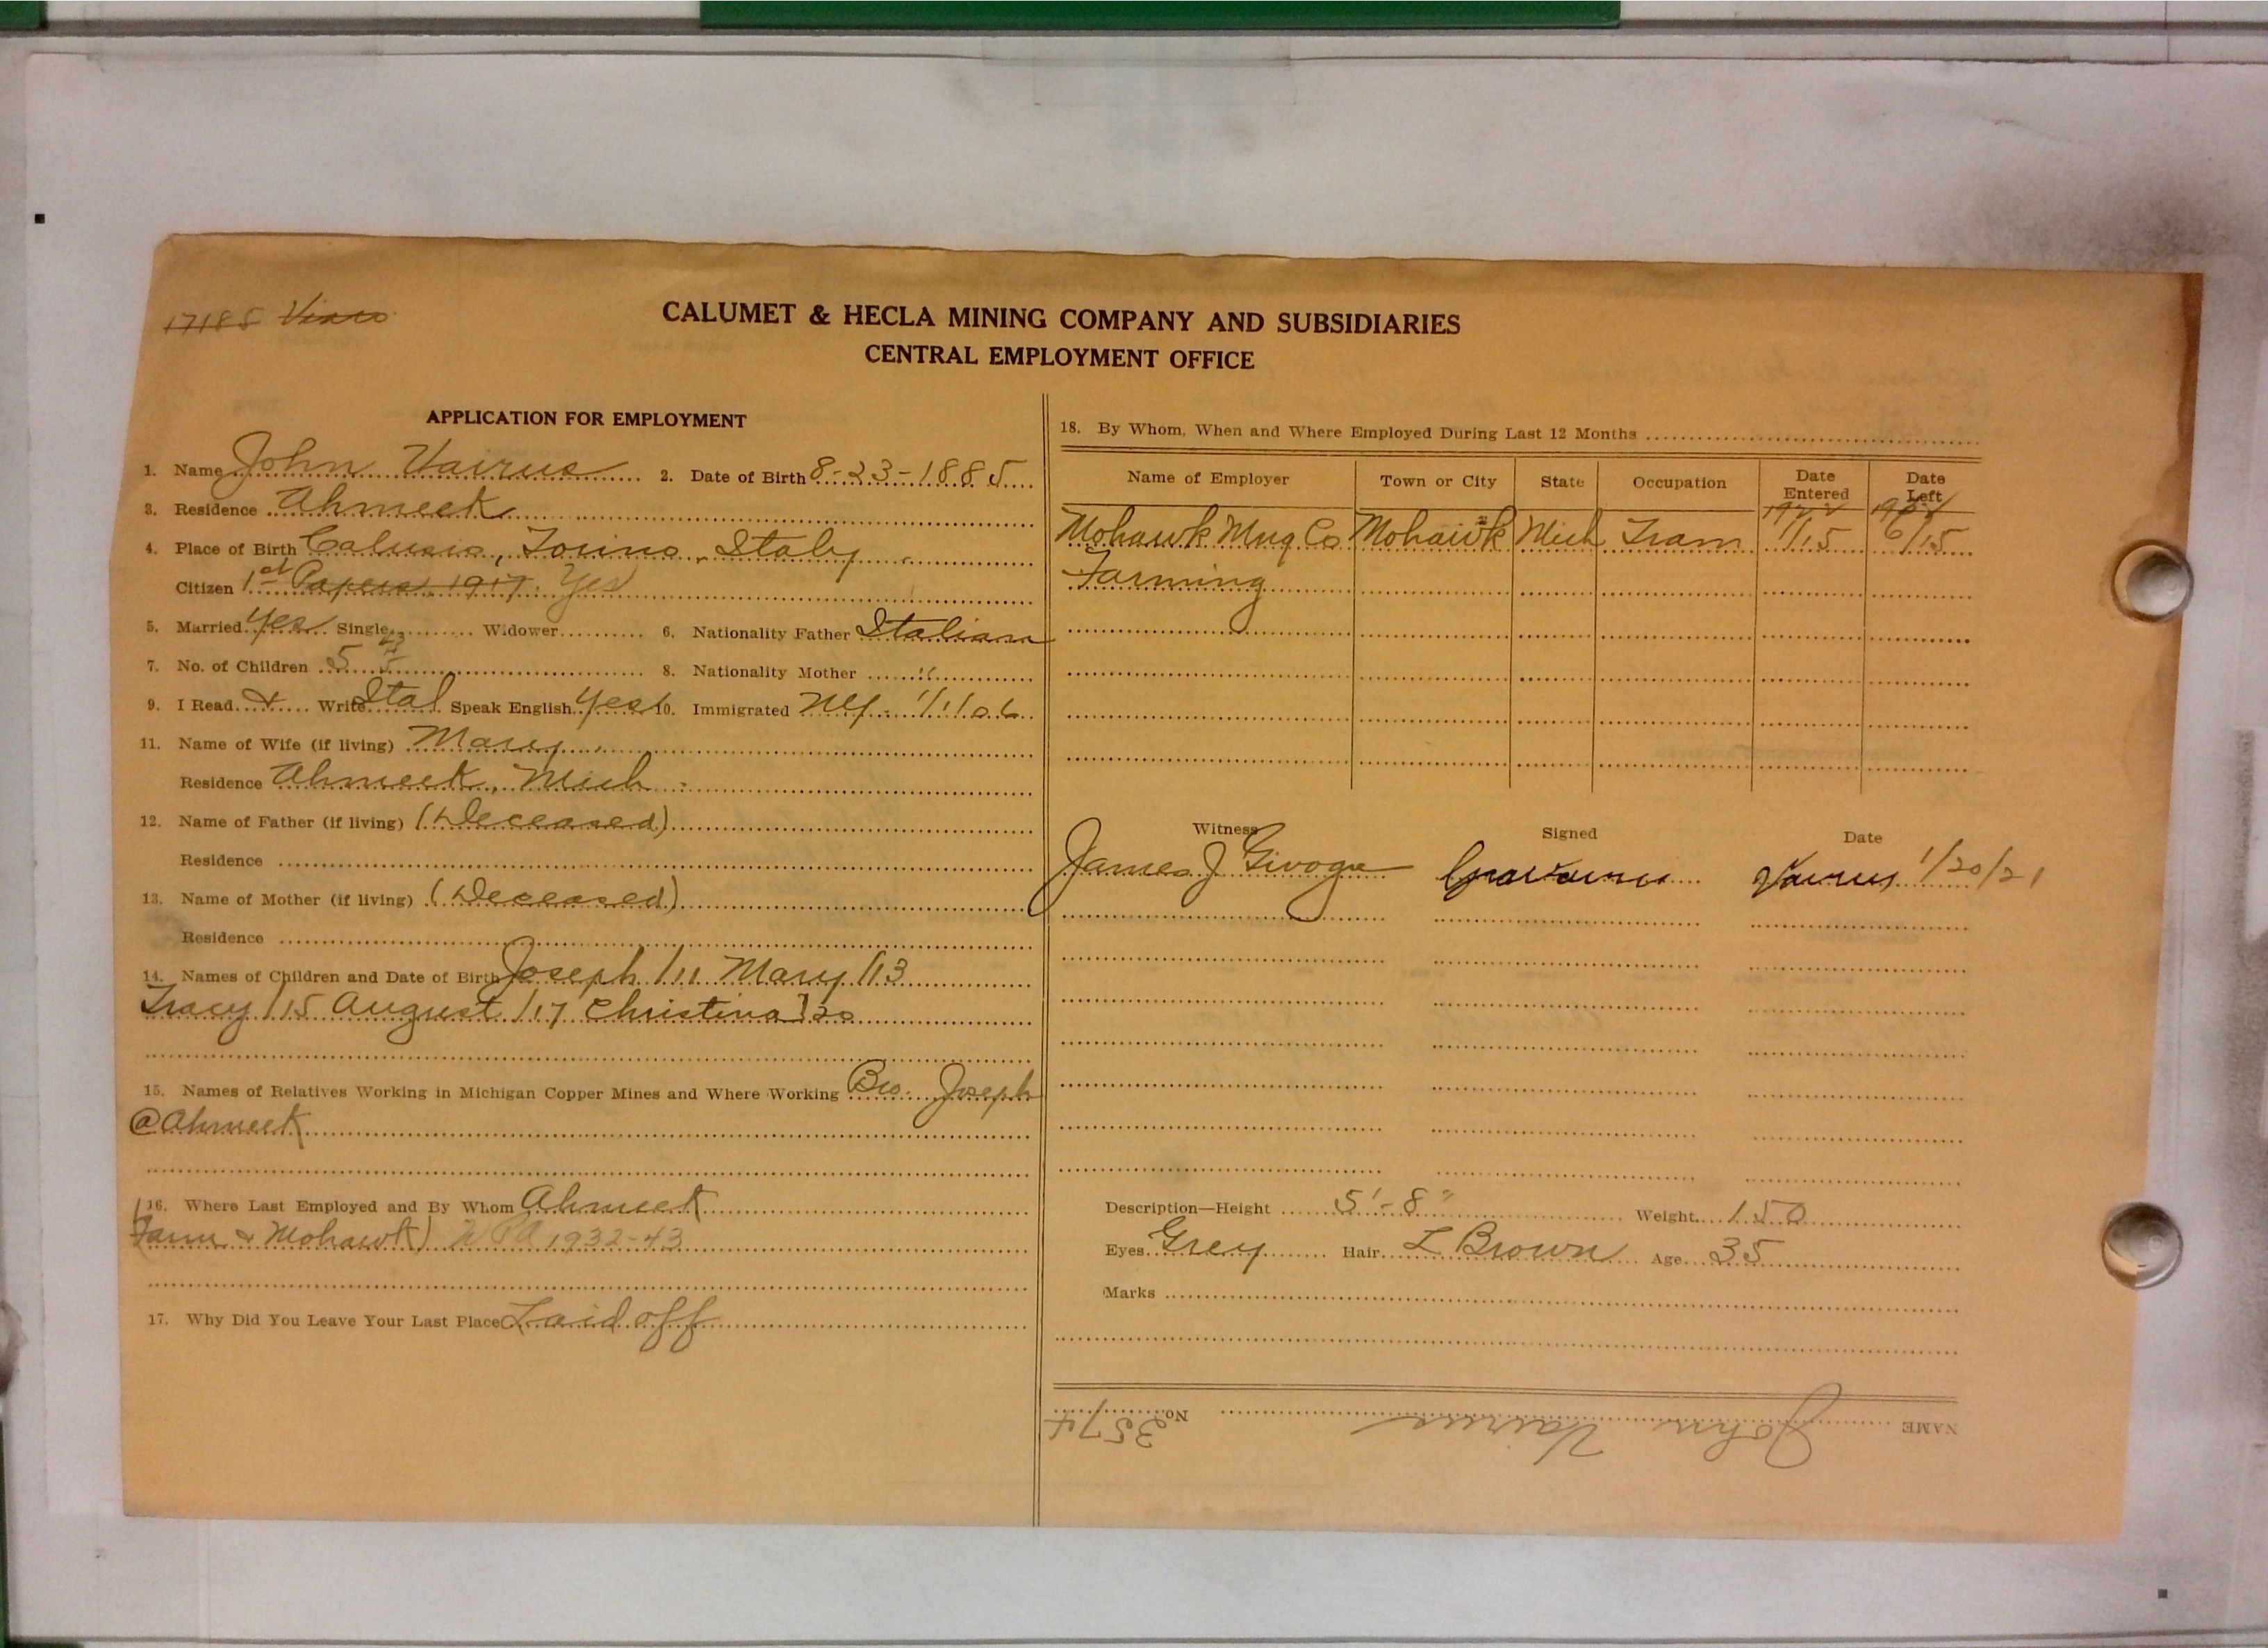 17185 Viano
CALUMET & HECLA MINING COMPANY AND SUBSIDIARIES
CENTRAL EMPLOYMENT OFFICE
APPLICATION FOR EMPLOYMENT
1. Name John Vairus 2. Date of Birth 8-23-1885
3. Residence Ahmeek
4. Place of Birth Calusio, Torino, Italy
Citizen 1st Papers 1917 Yes
5. Married Yes Single Widower 6. Nationality Father Italian
7. No. of Children 5 8. Nationality Mother "
9. I Read & Write Ital Speak English Yes 10. Immigrated NY - 1/1/06
11. Name of Wife (if living) Mary
Residence Ahmeek, Mich
12. Name of Father (if living) (Deceased)
Residence
13. Name of Mother (if living) (Deceased)
Residence
14. Names of Children and Date of Birth Joseph /11 Mary /13
Tracy /15 August /17 Christina /20
15. Names of Relatives Working in Michigan Copper Mines and Where Working Bro. Joseph
@ Ahmeek
16. Where Last Employed and By Whom Ahmeek
(Farm & Mohawk) WPA 1932-43
17. Why Did You Leave Your Last Place Laid off
18. By Whom, When and Where Employed During Last 12 Months
Name of Employer Town or City State Occupation Date Entered Date Left
Mohawk Mng Co Mohawk Mich Tram 1/15 6/15
Farming
Witness Signed Date
James J Vairus 1/20/21
Description—Height 5'-8" Weight 150
Eyes Grey Hair L Brown Age 35
Marks
NAME John Vairus No. 3574